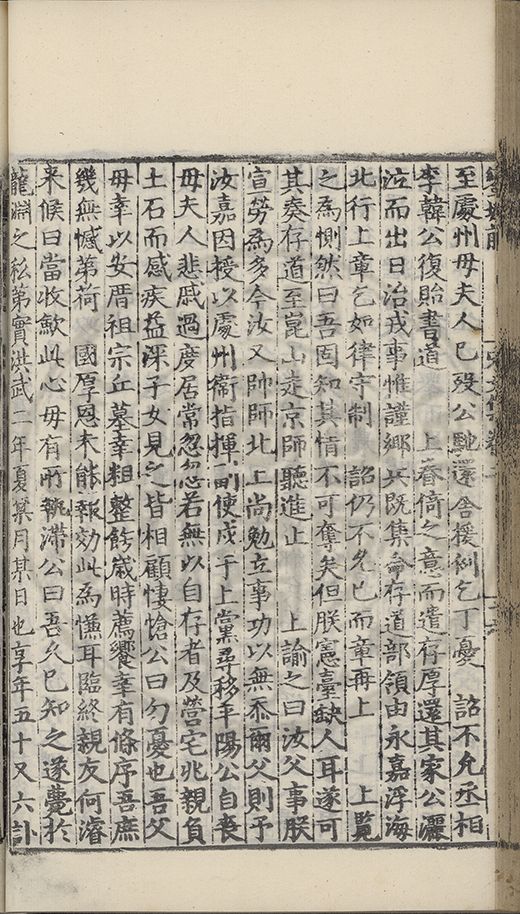 至處州毋夫人已歿公馳還舍援例乞丁憂　詔不允丞相
李韓公復貽書道　上眷倚之意而遣存厚還其家公灑
泣而出日治戎事惟謹鄉兵既集命存道部領由永嘉浮海
北行上章乞如律守制　詔仍不允已而章再上　上覧
之為惻然曰吾固知其情不可奪矣但朕憲臺缺人耳遂可
其奏存道至崑山走京師聽進止　上諭之曰汝父事朕
宣勞為多今汝又帥師北上尚勉立事功以無忝爾父則予
汝嘉因授以處州衛指揮副使戍于上黨尋移平陽公自喪
毋夫人悲戚過度居常忽忽若無以自存者及營宅兆親負
土石而感疾益深子女見之皆相顧悽愴公曰勿憂也吾父
毋幸以安厝祖宗丘墓幸粗整飭歳時薦饗幸有條序吾庶
幾無憾第荷　國厚恩未能報効此為慊耳臨終親友何濬
来候曰當收歛此心毋有所執滞公曰吾久已知之遂薨於
龍淵之私第實洪武二年夏某月某日也享年五十又六訃